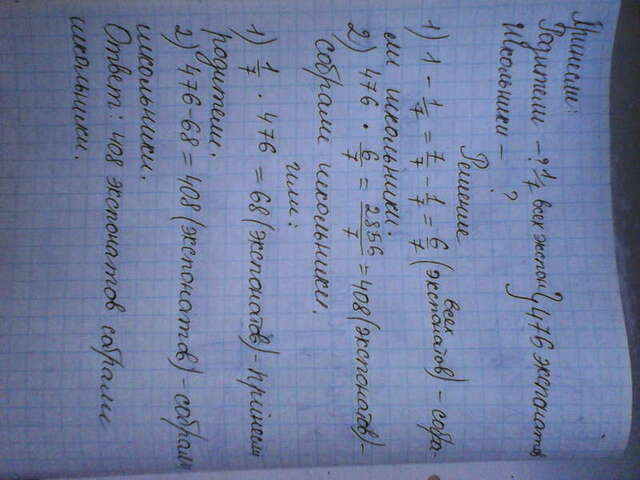 Принесли:
Родители – ? 1/7 всех экспон. } 476 экспонатов
Школьники – ?
Решение
1) 1 - 1/7 = 7/7 - 1/7 = 6/7 (всех экспонатов) – собра-
ли школьники.
2) 476 · 6/7 = 2856/7 = 408 (экспонатов) –
собрали школьники.
или:
1) 1/7 · 476 = 68 (экспонатов) – принесли
родители.
2) 476-68 = 408 (экспонатов) – собрали
школьники.
Ответ: 408 экспонатов собрали
школьники.